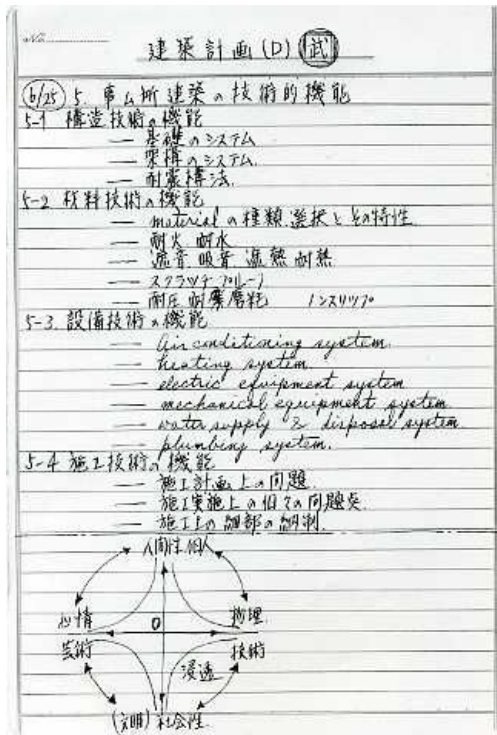 No.
建築計画(D) 武
6/25 5. 事ム所建築の技術的機能
5-1 構造技術の機能
— 基礎のシステム
— 架構のシステム.
— 耐震構法.
5-2 材料技術の機能
— materialの種類選択とその特性
— 耐火 耐水
— 遮音 吸音 遮熱 耐熱
— スクラッチプルーフ
— 耐圧 耐摩磨耗 ノンスリップ
5-3 設備技術の機能
— air conditioning system.
— heating system.
— electric equipment system
— mechanical equipment system
— water supply & disposal system
— plumbing system.
5-4 施工技術の機能
— 施工計画上の問題.
— 施工実施上の個々の問題点
— 施工上の細部の
人間性 個人
心情 0 物理
芸術 技術
浸透
(文明) 社会性.